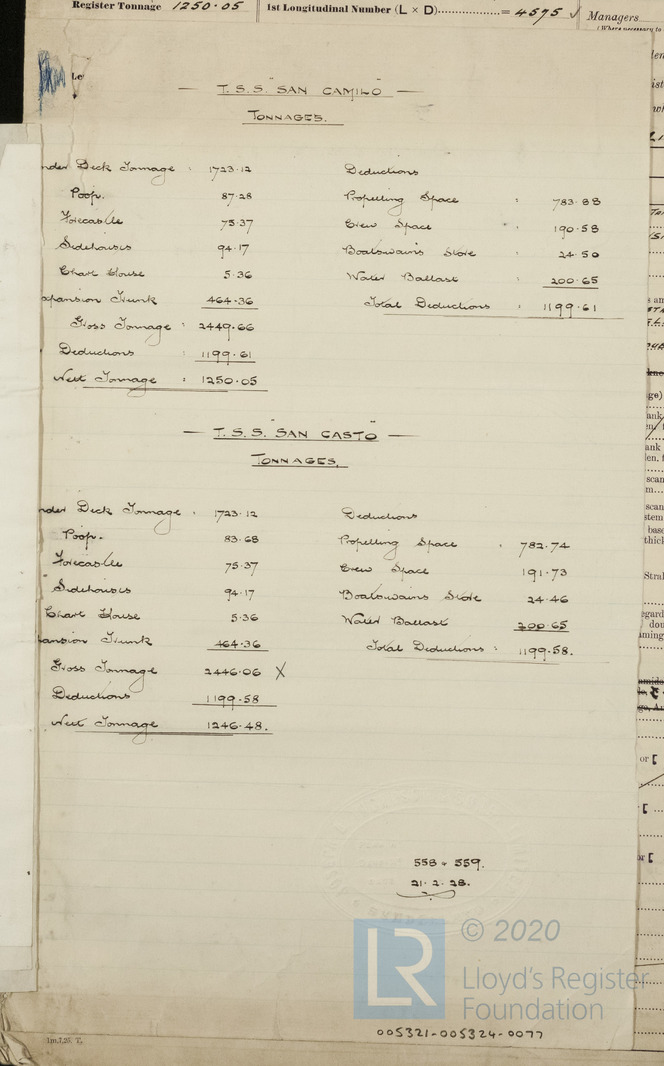 Register Tonnage 1250.05
1st Longitudinal Number (L × D) = 4575 √
Managers
— T.S.S. "SAN CAMILO" —
TONNAGES.
nder Deck Tonnage : 1723.12
Poop. 87.28
Forecastle 75.37
Sidehouses 94.17
Chart House 5.36
xpansion Trunk 464.36
Gross Tonnage : 2449.66
Deductions : 1199.61
Nett Tonnage : 1250.05
Deductions
Propelling Space : 783.88
Crew Space : 190.58
Boatswain's Store : 24.50
Water Ballast : 200.65
Total Deductions : 1199.61
— T.S.S. "SAN CASTO" —
TONNAGES.
nder Deck Tonnage : 1723.12
Poop. 83.68
Forecastle 75.37
Sidehouses 94.17
Chart House 5.36
pansion Trunk 464.36
Gross Tonnage 2446.06 X
Deductions 1199.58
Nett Tonnage 1246.48.
Deductions
Propelling Space . 782.74
Crew Space 191.73
Boatswains Store 24.46
Water Ballast 200.65
Total Deductions : 1199.58.
558 & 559.
21.2.28.
© 2020
LR
Lloyd's Register
Foundation
005321-005324-0077
1m,7,25. T.